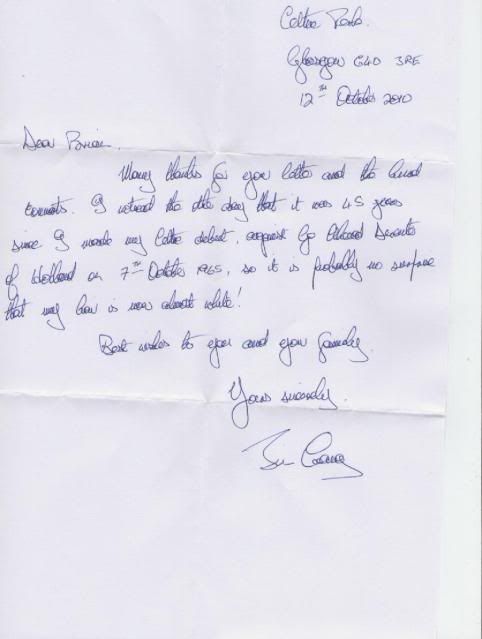 Celtic Park.
Glasgow G40 3RE
12TH October 2010
Dear Brian,
Many thanks for your letter and the kind
comments. I noticed the other day that it was 45 years
since I made my Celtic debut, against Go Ahead Deventer
of Holland on 7TH October 1965, so it is probably no surprise
that my hair is now almost white!
Best wishes to you and your family.
Yours sincerely.